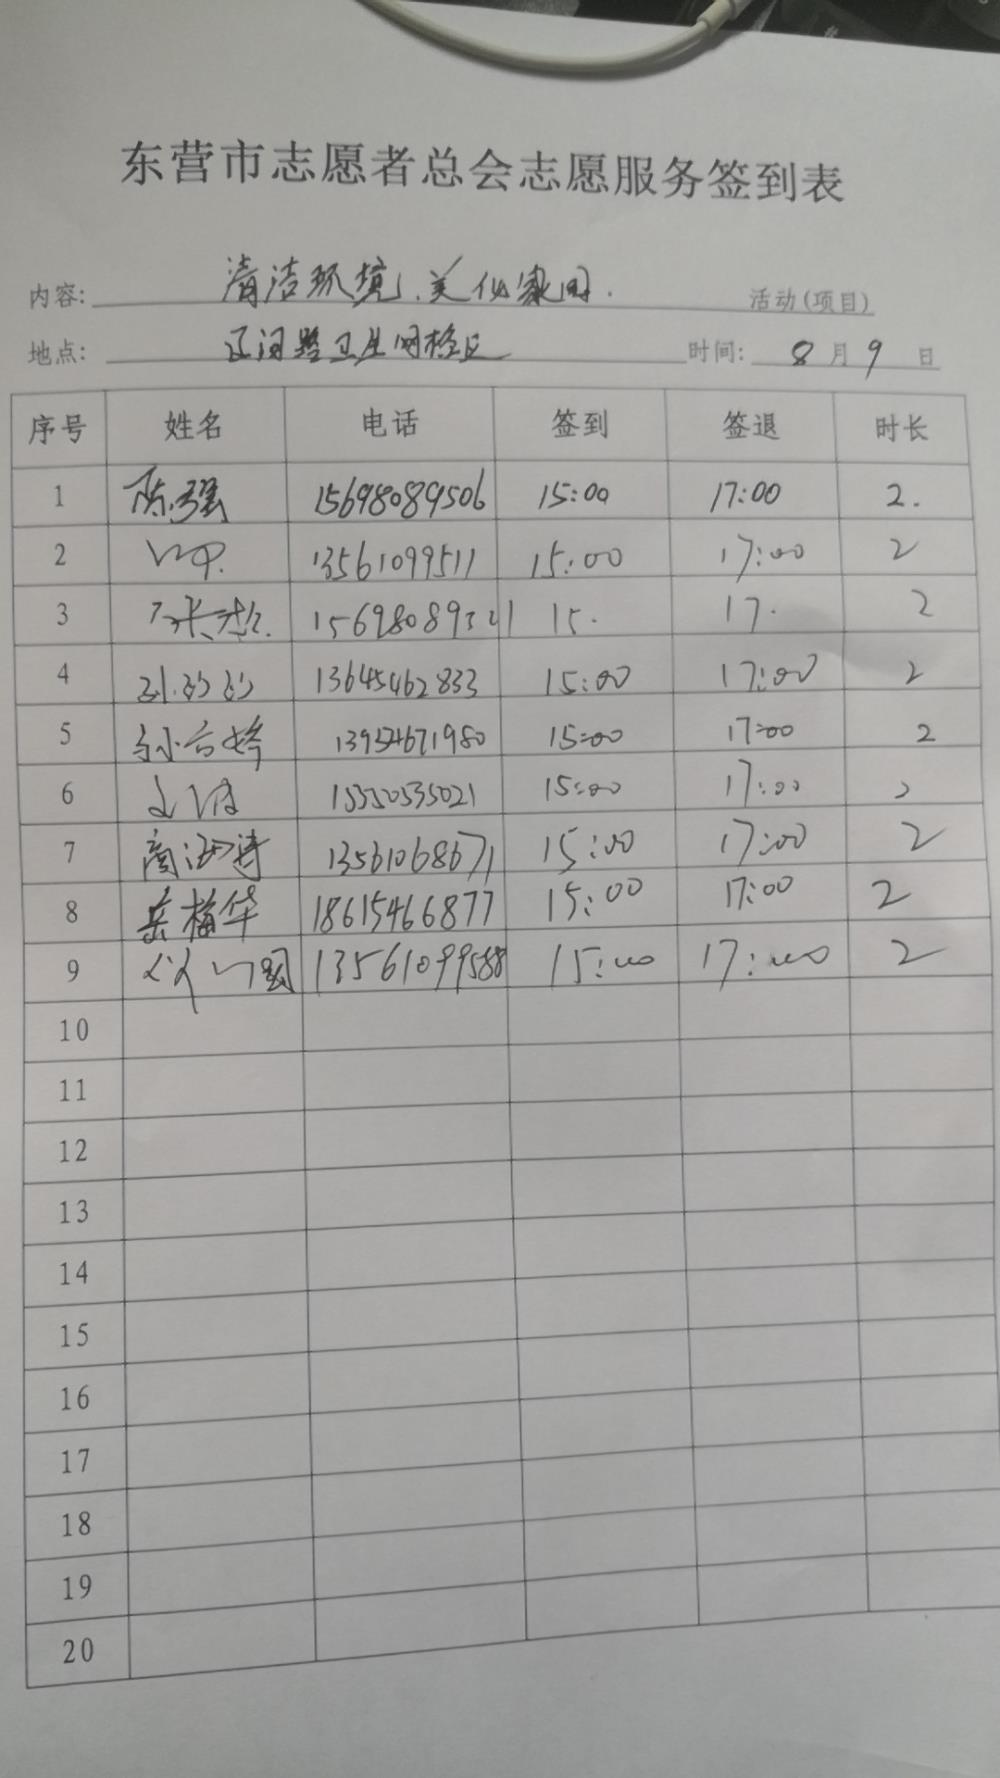 东营市志愿者总会志愿服务签到表
内容: 清洁环境、美化家园. 活动(项目)
地点: 辽河路卫生网格区 时间: 8月9日
序号 姓名 电话 签到 签退 时长
1 陈强 15698089506 15:00 17:00 2.
2 13561099511 15:00 17:00 2
3 15. 17. 2
4 13645462833 15:00 17:00 2
5 13954671980 15:00 17:00 2
6 15350535021 15:00 17:00
7 13561068671 15:00 17:00 2
8 岳梅华 18615466877 15:00 17:00 2
9 13561099588 15:00 17:00 2
10
11
12
13
14
15
16
17
18
19
20